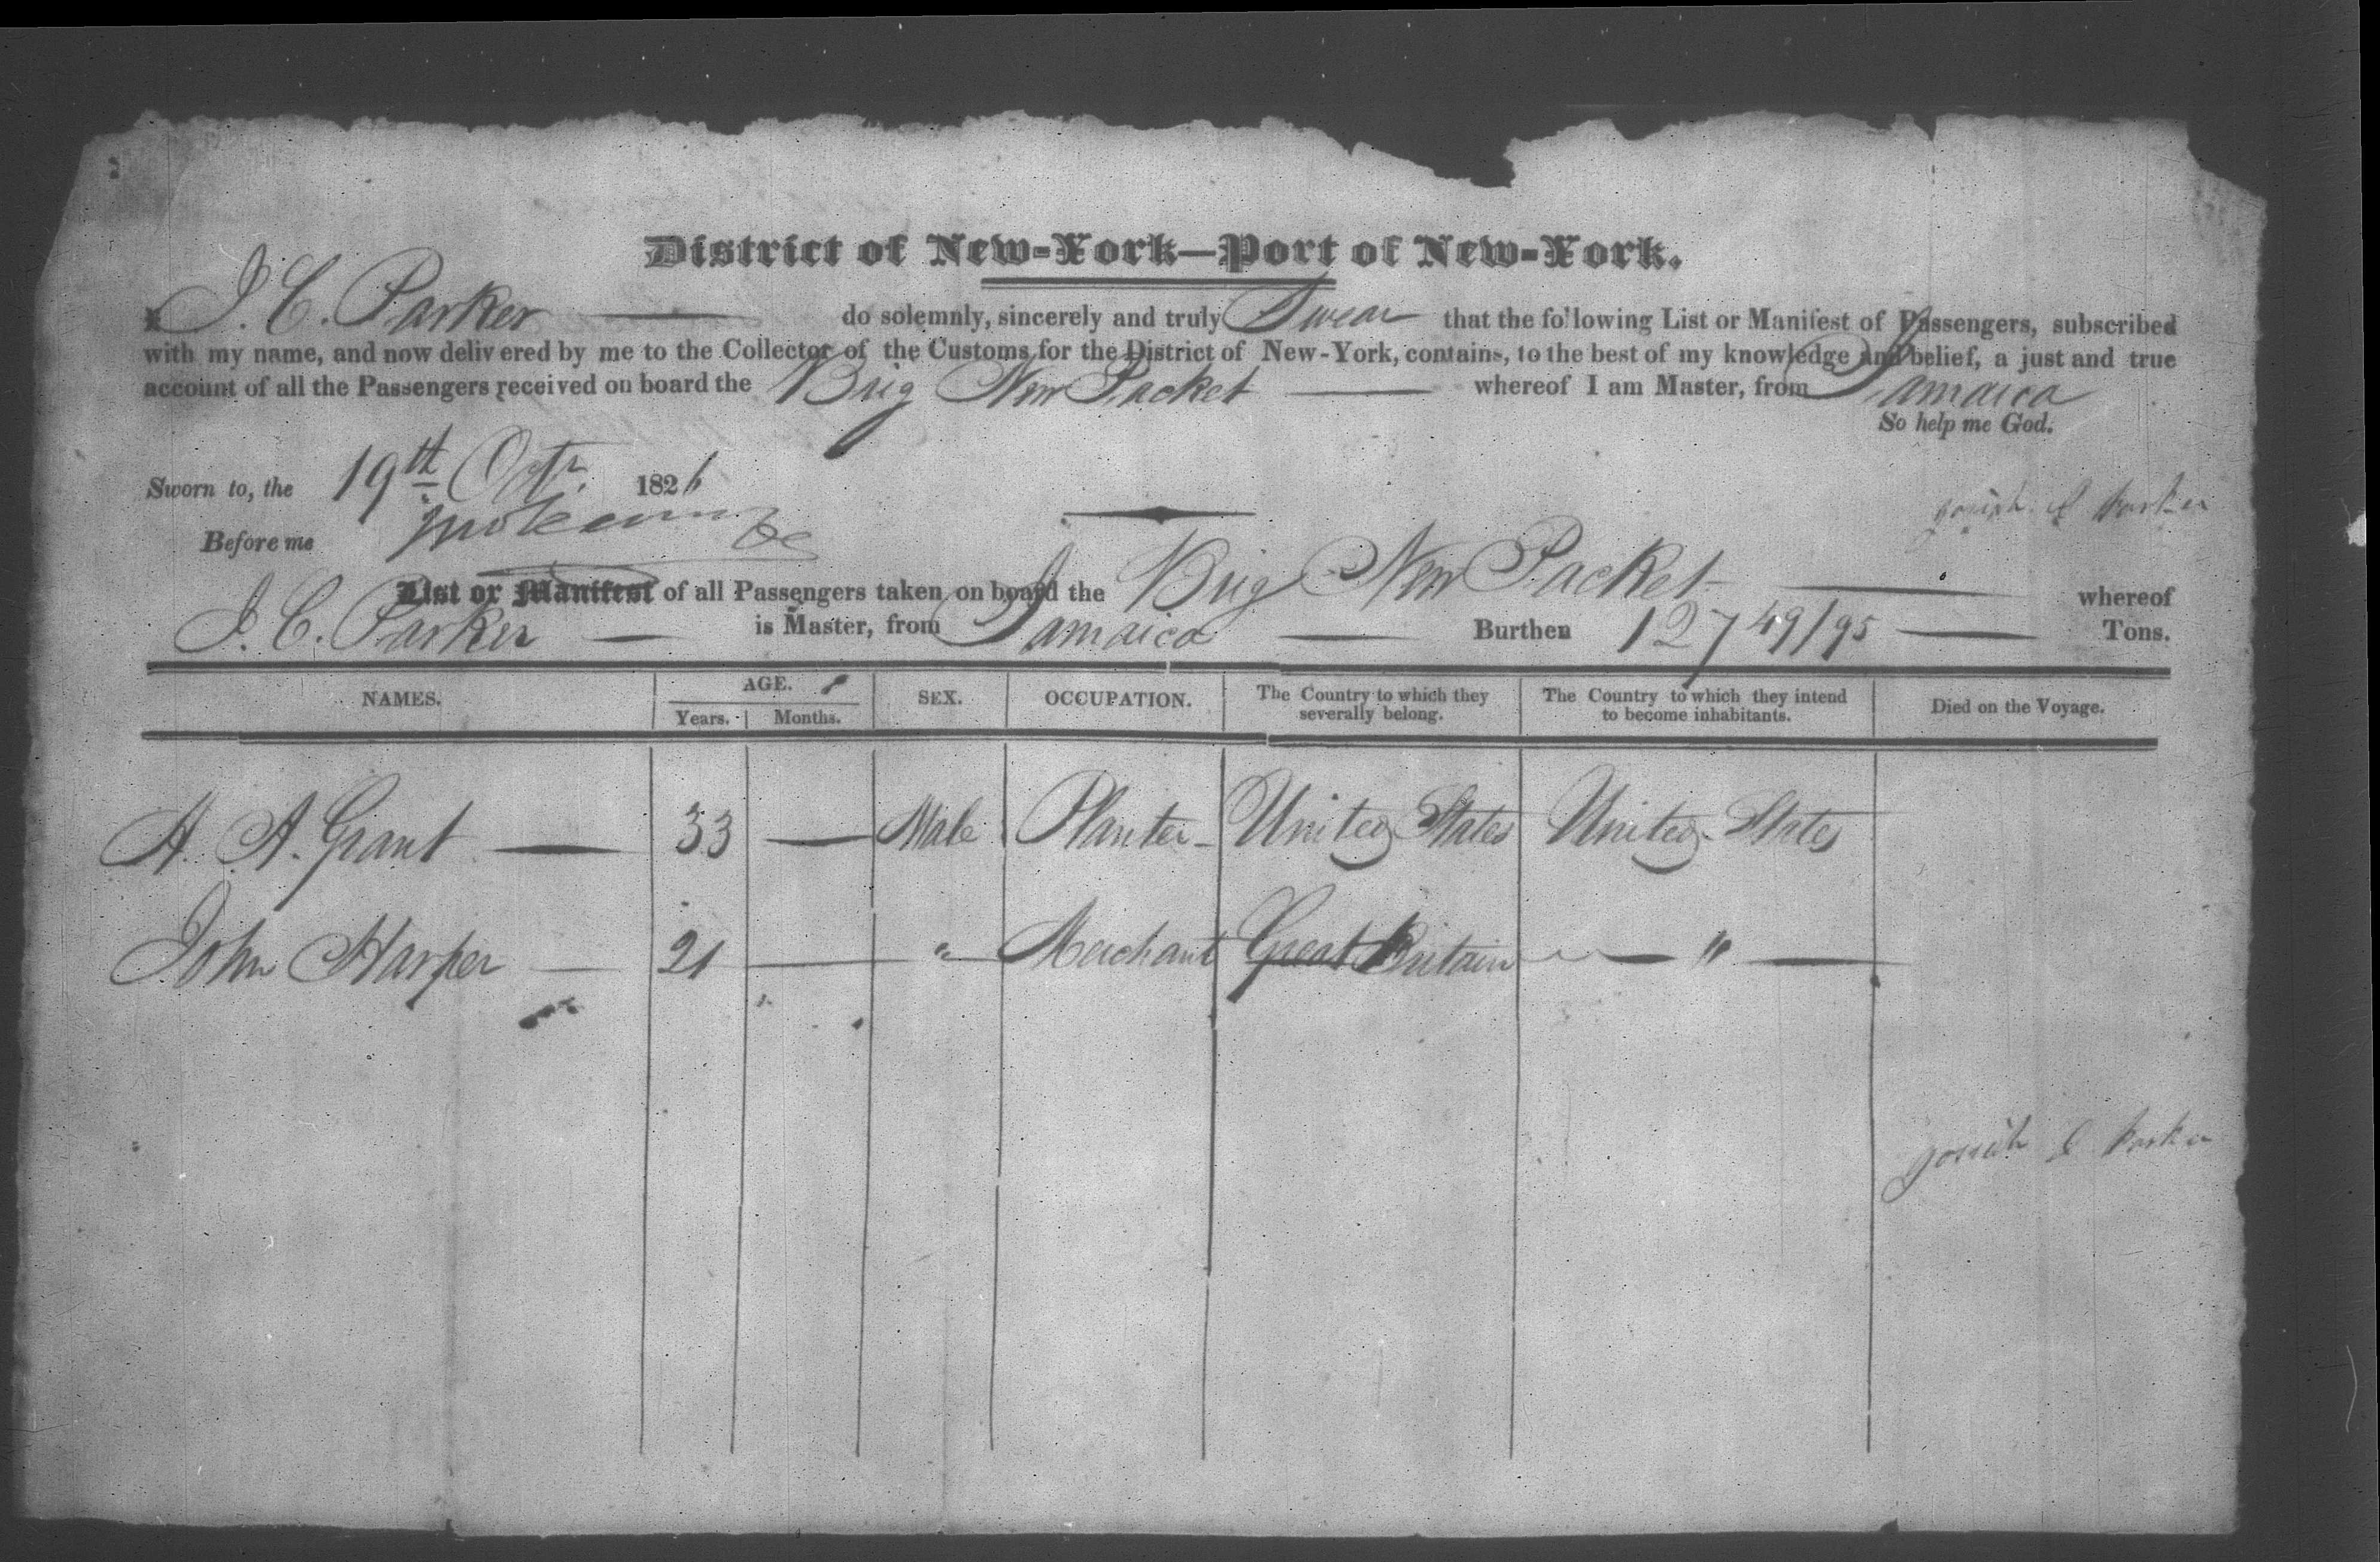 District of New-York—Port of New-York.
I, J. C. Parker do solemnly, sincerely and truly Swear that the following List or Manifest of Passengers, subscribed
with my name, and now delivered by me to the Collector of the Customs for the District of New-York, contains, to the best of my knowledge and belief, a just and true
account of all the Passengers received on board the Brig New Packet whereof I am Master, from Jamaica
So help me God.
Sworn to, the 19th Octr. 1826
Josiah C Parker
Before me
List or Manifest of all Passengers taken on board the Brig New Packet whereof
J. C. Parker is Master, from Jamaica Burthen 127 49/95 Tons.
NAMES. AGE. Years. Months. SEX. OCCUPATION. The Country to which they severally belong. The Country to which they intend to become inhabitants. Died on the Voyage.
H. A. Grant — 33 — Male Planter - United States United States
John Harper — 21 — " Merchant Great Britain — " —
Josiah C Parker